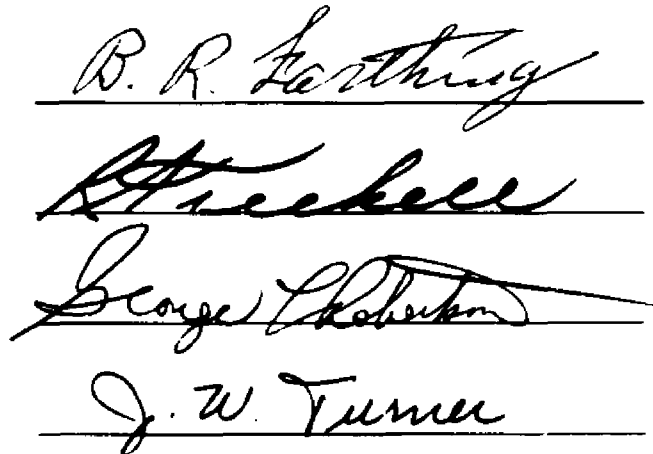 B. R. Farthing
R Freekell
George L Robertson
J. W. Turner